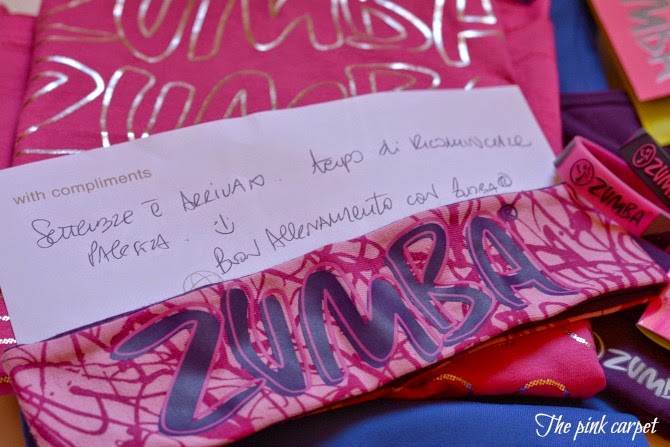 ZUMBA
ZUMBA
with compliments
SETTEMBRE È ARRIVATO. TEMPO DI RICOMINCIARE
PALESTRA. :)
BUON ALLENAMENTO CON ZUMBA®
ZUMBA
ZUMBA
ZUMBA
ZUMBA
The pink carpet